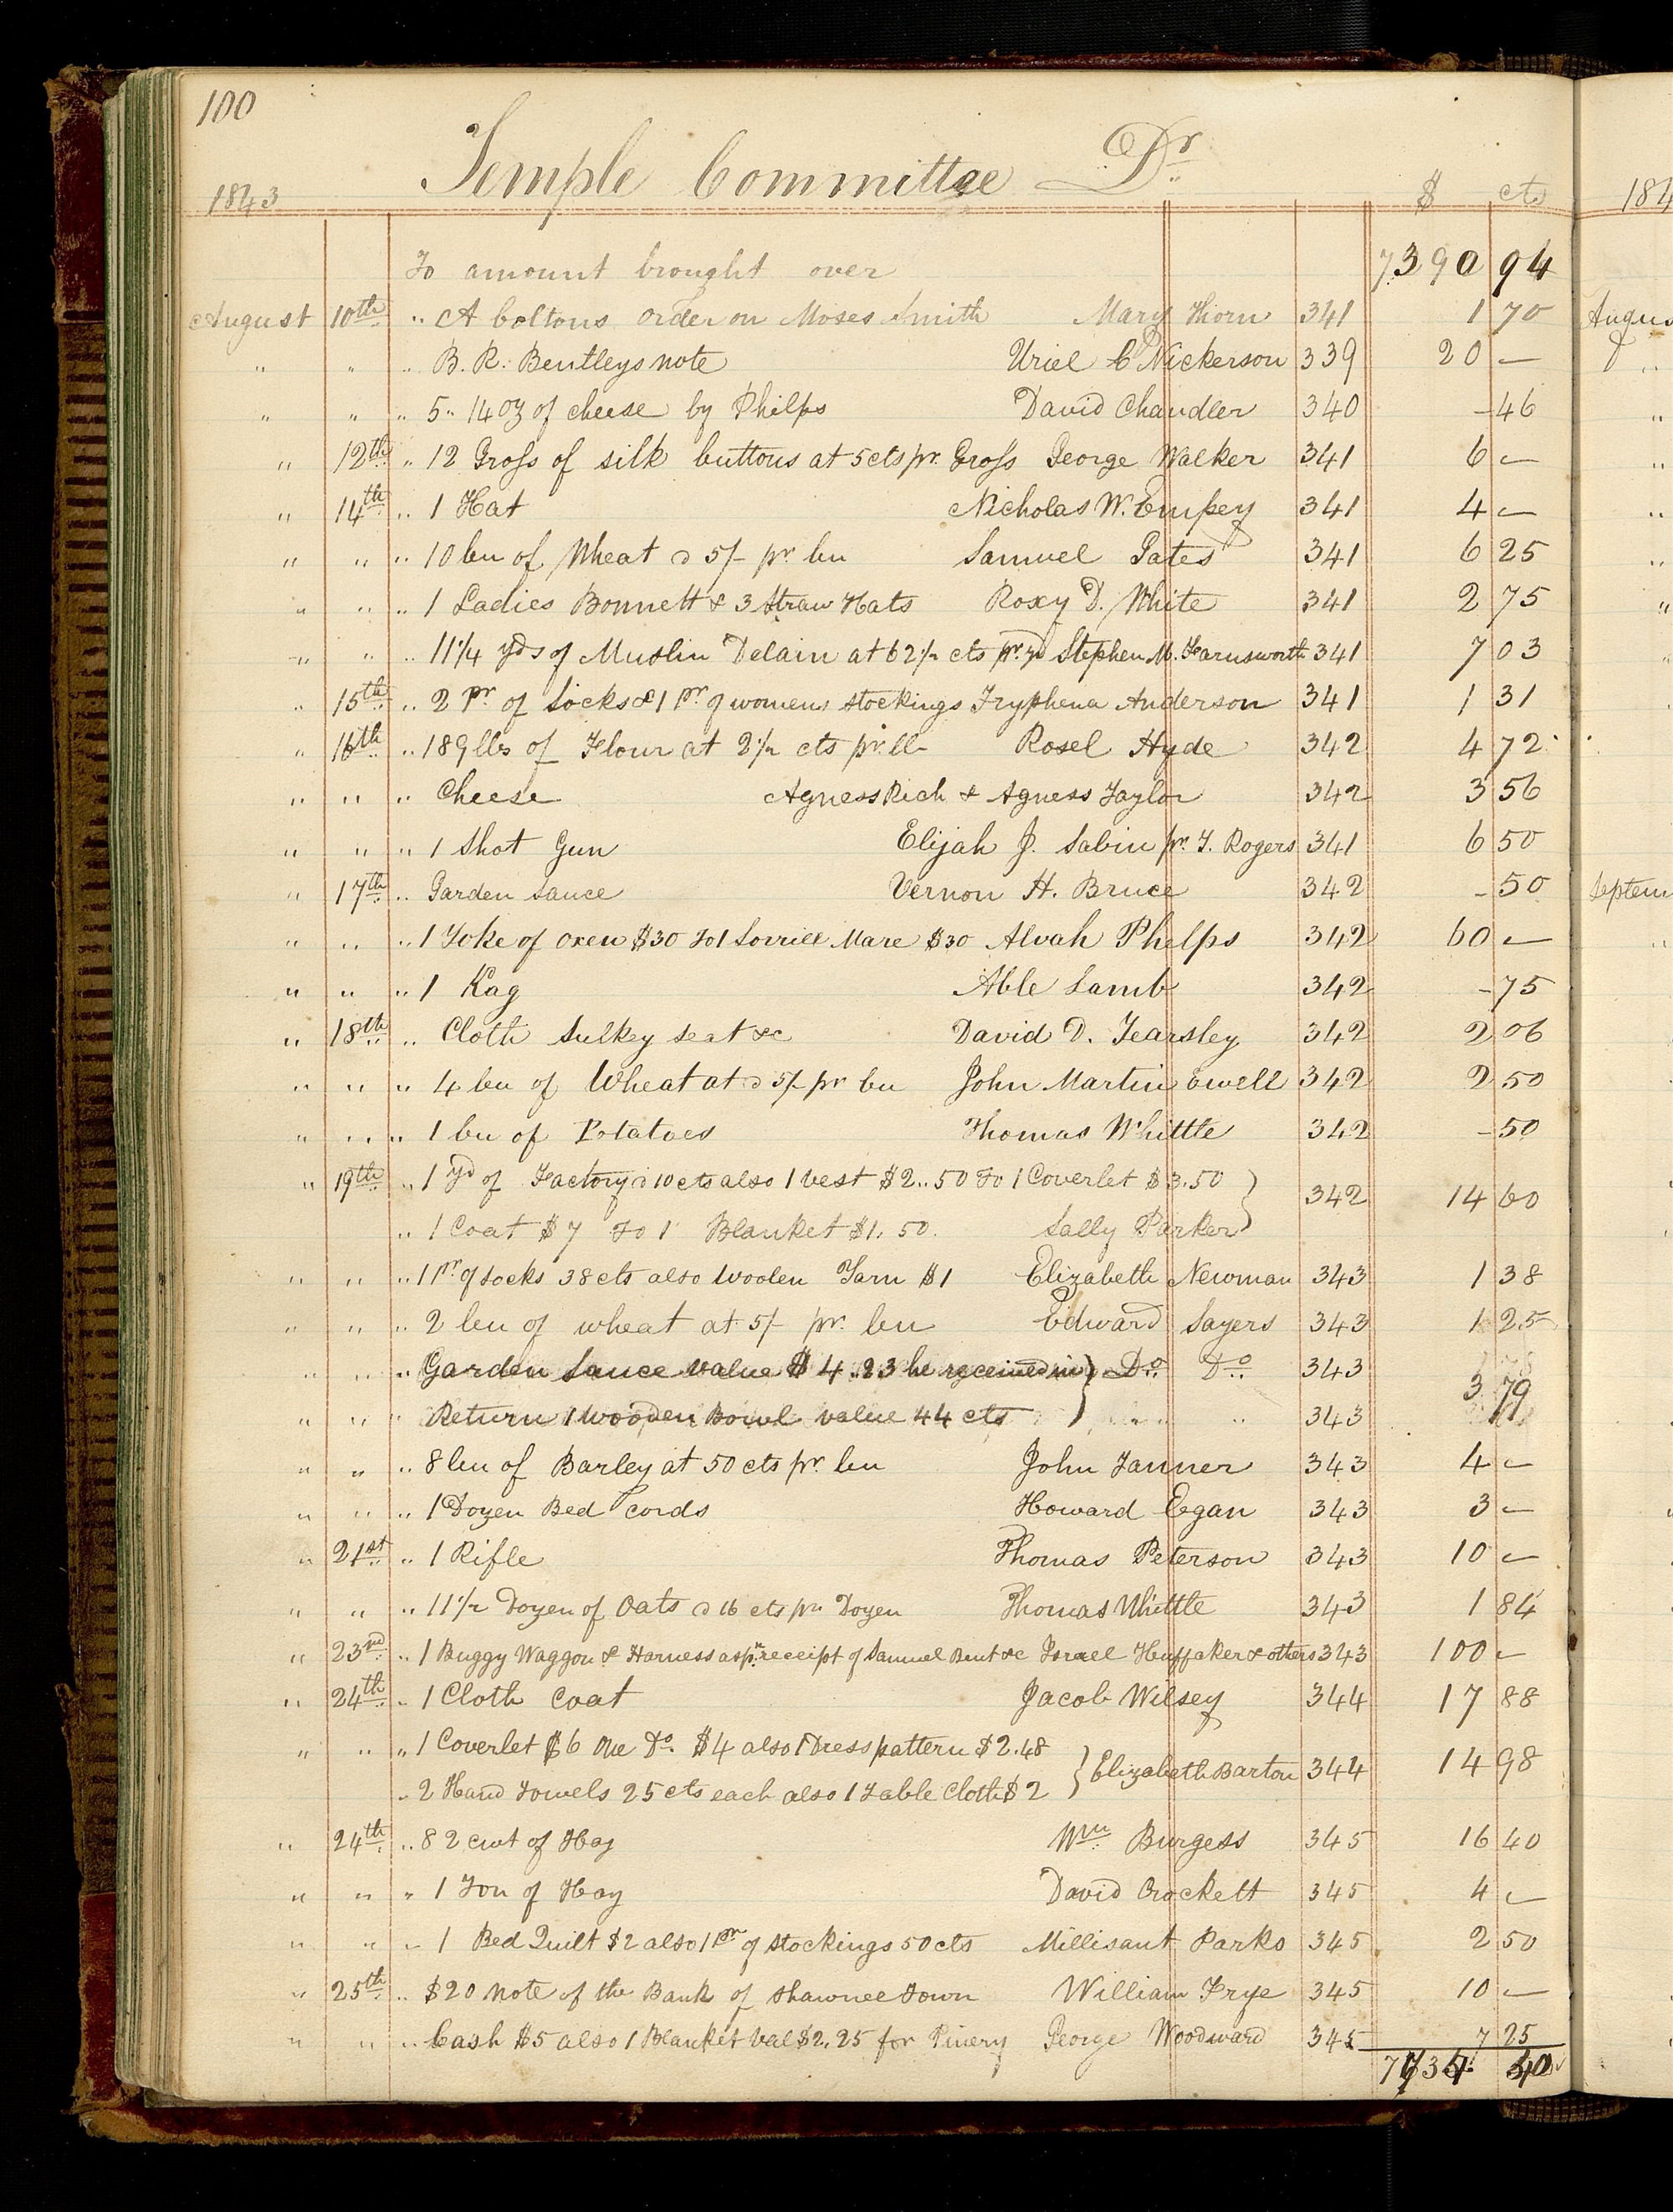 100
Temple Committee Dr
1843 $ cts 184
To amount brought over 7390 94
August 10th " A Coltons order on Moses Smith Mary Thorn 341 1 70 Augus
" " " B. R. Bentleys note Uriel C Nickerson 339 20 —
" " " 5 " 14 oz of cheese by Philps David Chandler 340 - 46
" 12th " 12 Gross of silk buttons at 5cts pr. Gross George Walker 341 6 —
" 14th " 1 Hat Nicholas W. Empey 341 4 —
" " " 10 bu of Wheat @ 5/- pr bu Samuel Gates 341 6 25
" " " 1 Ladies Bonnett & 3 Straw Hats Roxy D. White 341 2 75
" " " 11 1/4 yds of Muslin Delain at 62 1/2 cts pr. yd Stephen M. Farnsworth 341 7 03
" 15th " 2 Pr. of Socks & 1 pr. of womens stockings Tryphena Anderson 341 1 31
" 16th " 189 lbs of Flour at 2 1/2 cts pr. lb Rosel Hyde 342 4 72
" " " Cheese Agness Rich & Agness Taylor 342 3 56
" " " 1 Shot Gun Elijah J. Sabin pr. T. Rogers 341 6 50
" 17th " Garden Sauce Vernon H. Bruce 342 - 50 Septem
" " " 1 Yoke of oxen $30 To 1 Sorrill Mare $30 Alvah Phelps 342 60 —
" " " 1 Kag Able Lamb 342 - 75
" 18th " Cloth Sulkey seat &c David D. Yearsley 342 2 06
" " " 4 bu of Wheat at @ 5/- pr bu John Martin Ewell 342 2 50
" " " 1 bu of Potatoes Thomas Whittle 342 - 50
" 19th " 1 yd of Factory @ 10 cts also 1 Vest $2..50 To 1 Coverlet $3.50 } 342 14 60
" 1 Coat $7 To 1 Blanket $1.50. Sally Parker
" " " 1 Pr of socks 38 cts also Woolen Yarn $1 Elizabeth Newman 343 1 38
" " " 2 bu of wheat at 5/- pr. bu Edward Sayers 343 1 25
" " " Garden Sauce value $4..23 he received in } Do. Do. 343 3 79
" " " Return 1 Wooden Bowl value 44 cts } " " 343
" " " 8 bu of Barley at 50 cts pr. bu John Tanner 343 4 —
" " " 1 Dozen Bed Cords Howard Egan 343 3 —
" 21st " 1 Rifle Thomas Peterson 343 10 —
" " " 11 1/2 Dozen of Oats @ 16 cts pr Dozen Thomas Whittle 343 1 84
" 23rd " 1 Buggy Waggon & Harness as pr. receipt of Samuel Bent &c Israel Huffaker & others 343 100 —
" 24th " 1 Cloth Coat Jacob Wilsey 344 17 88
" " " 1 Coverlet $6 One Do. $4 also 1 Dress pattern $2.48 } Elizabeth Barton 344 14 98
" 2 Hand Towels 25 cts each also 1 Table Cloth $2
" 24th " 82 cwt of Hay Wm. Burgess 345 16 40
" " " 1 Ton of Hay David Crockett 345 4 —
" " " 1 Bed Quilt $2 also 1 Pr of stockings 50 cts Millisant Parks 345 2 50
" 25th " $20 Note of the Bank of Shawnee Town William Frye 345 10 —
" " " Cash $5 also 1 Blanket Val $2.25 for Pinery George Woodward 345 7 25